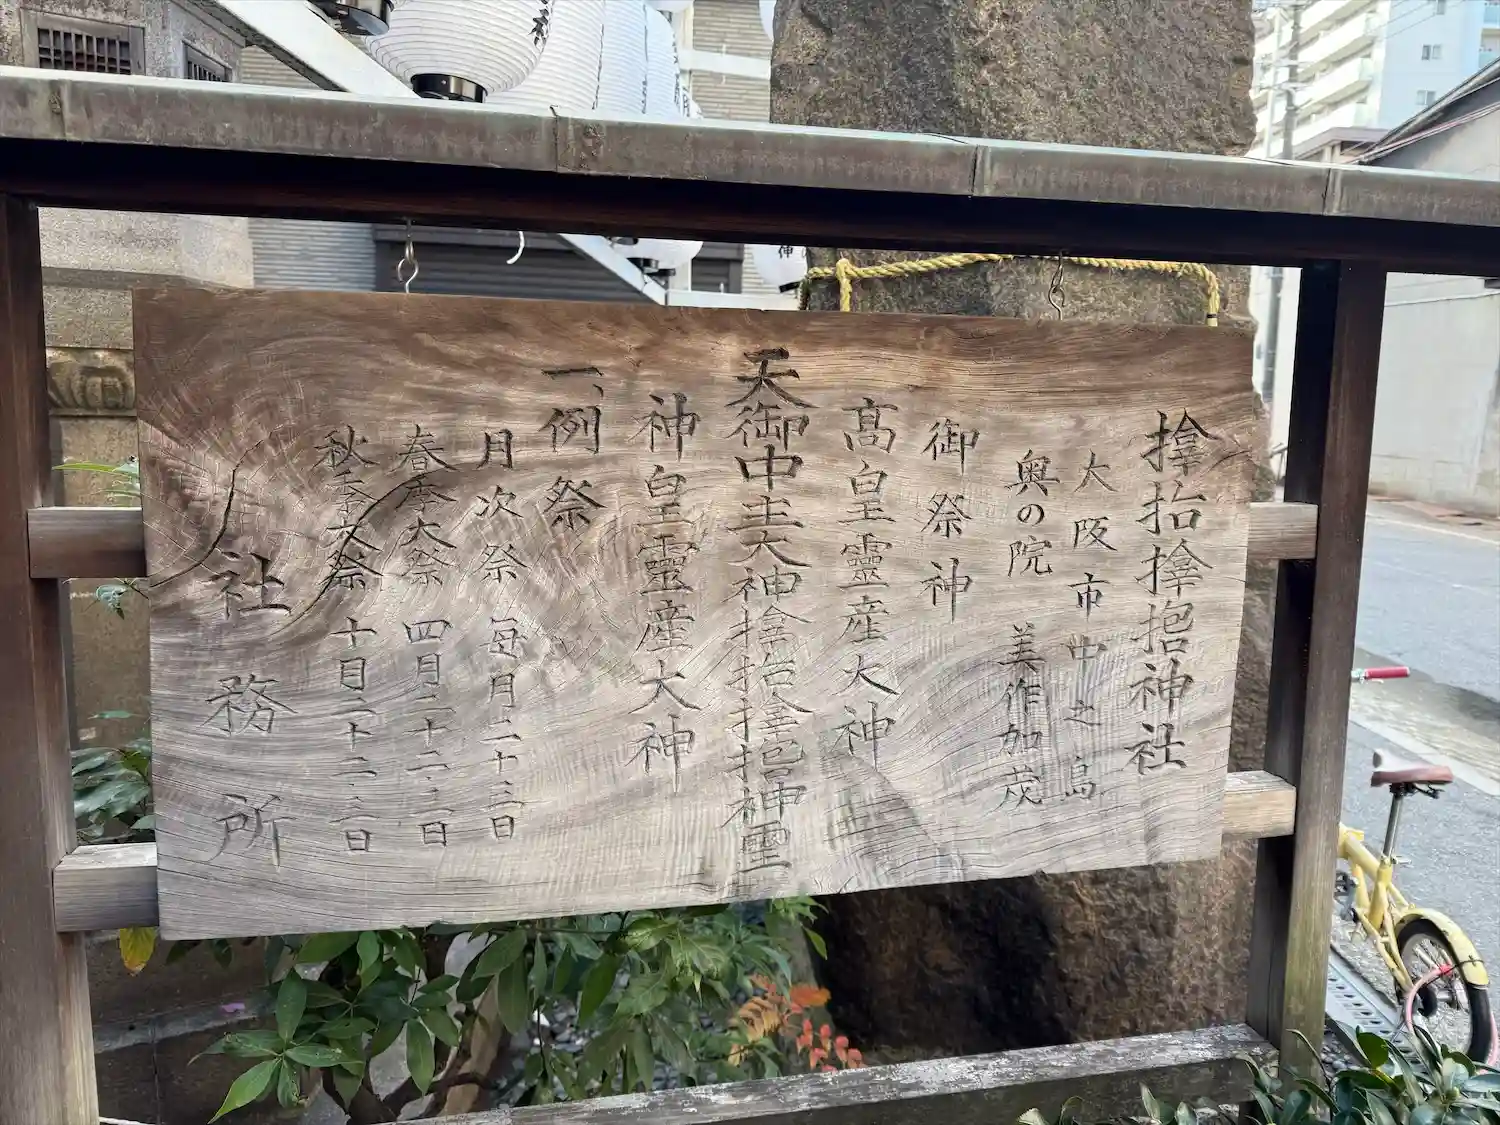 𪮷抬𪮷抱神社
大阪市中之島
奥の院 美作加茂
御祭神
髙皇靈産大神
天御中主大神𪮷抬𪮷抱神霊
神皇靈産大神
一、例祭
月次祭 毎月二十三日
春季大祭 四月二十二・三日
秋季大祭 十月二十二・三日
社務所